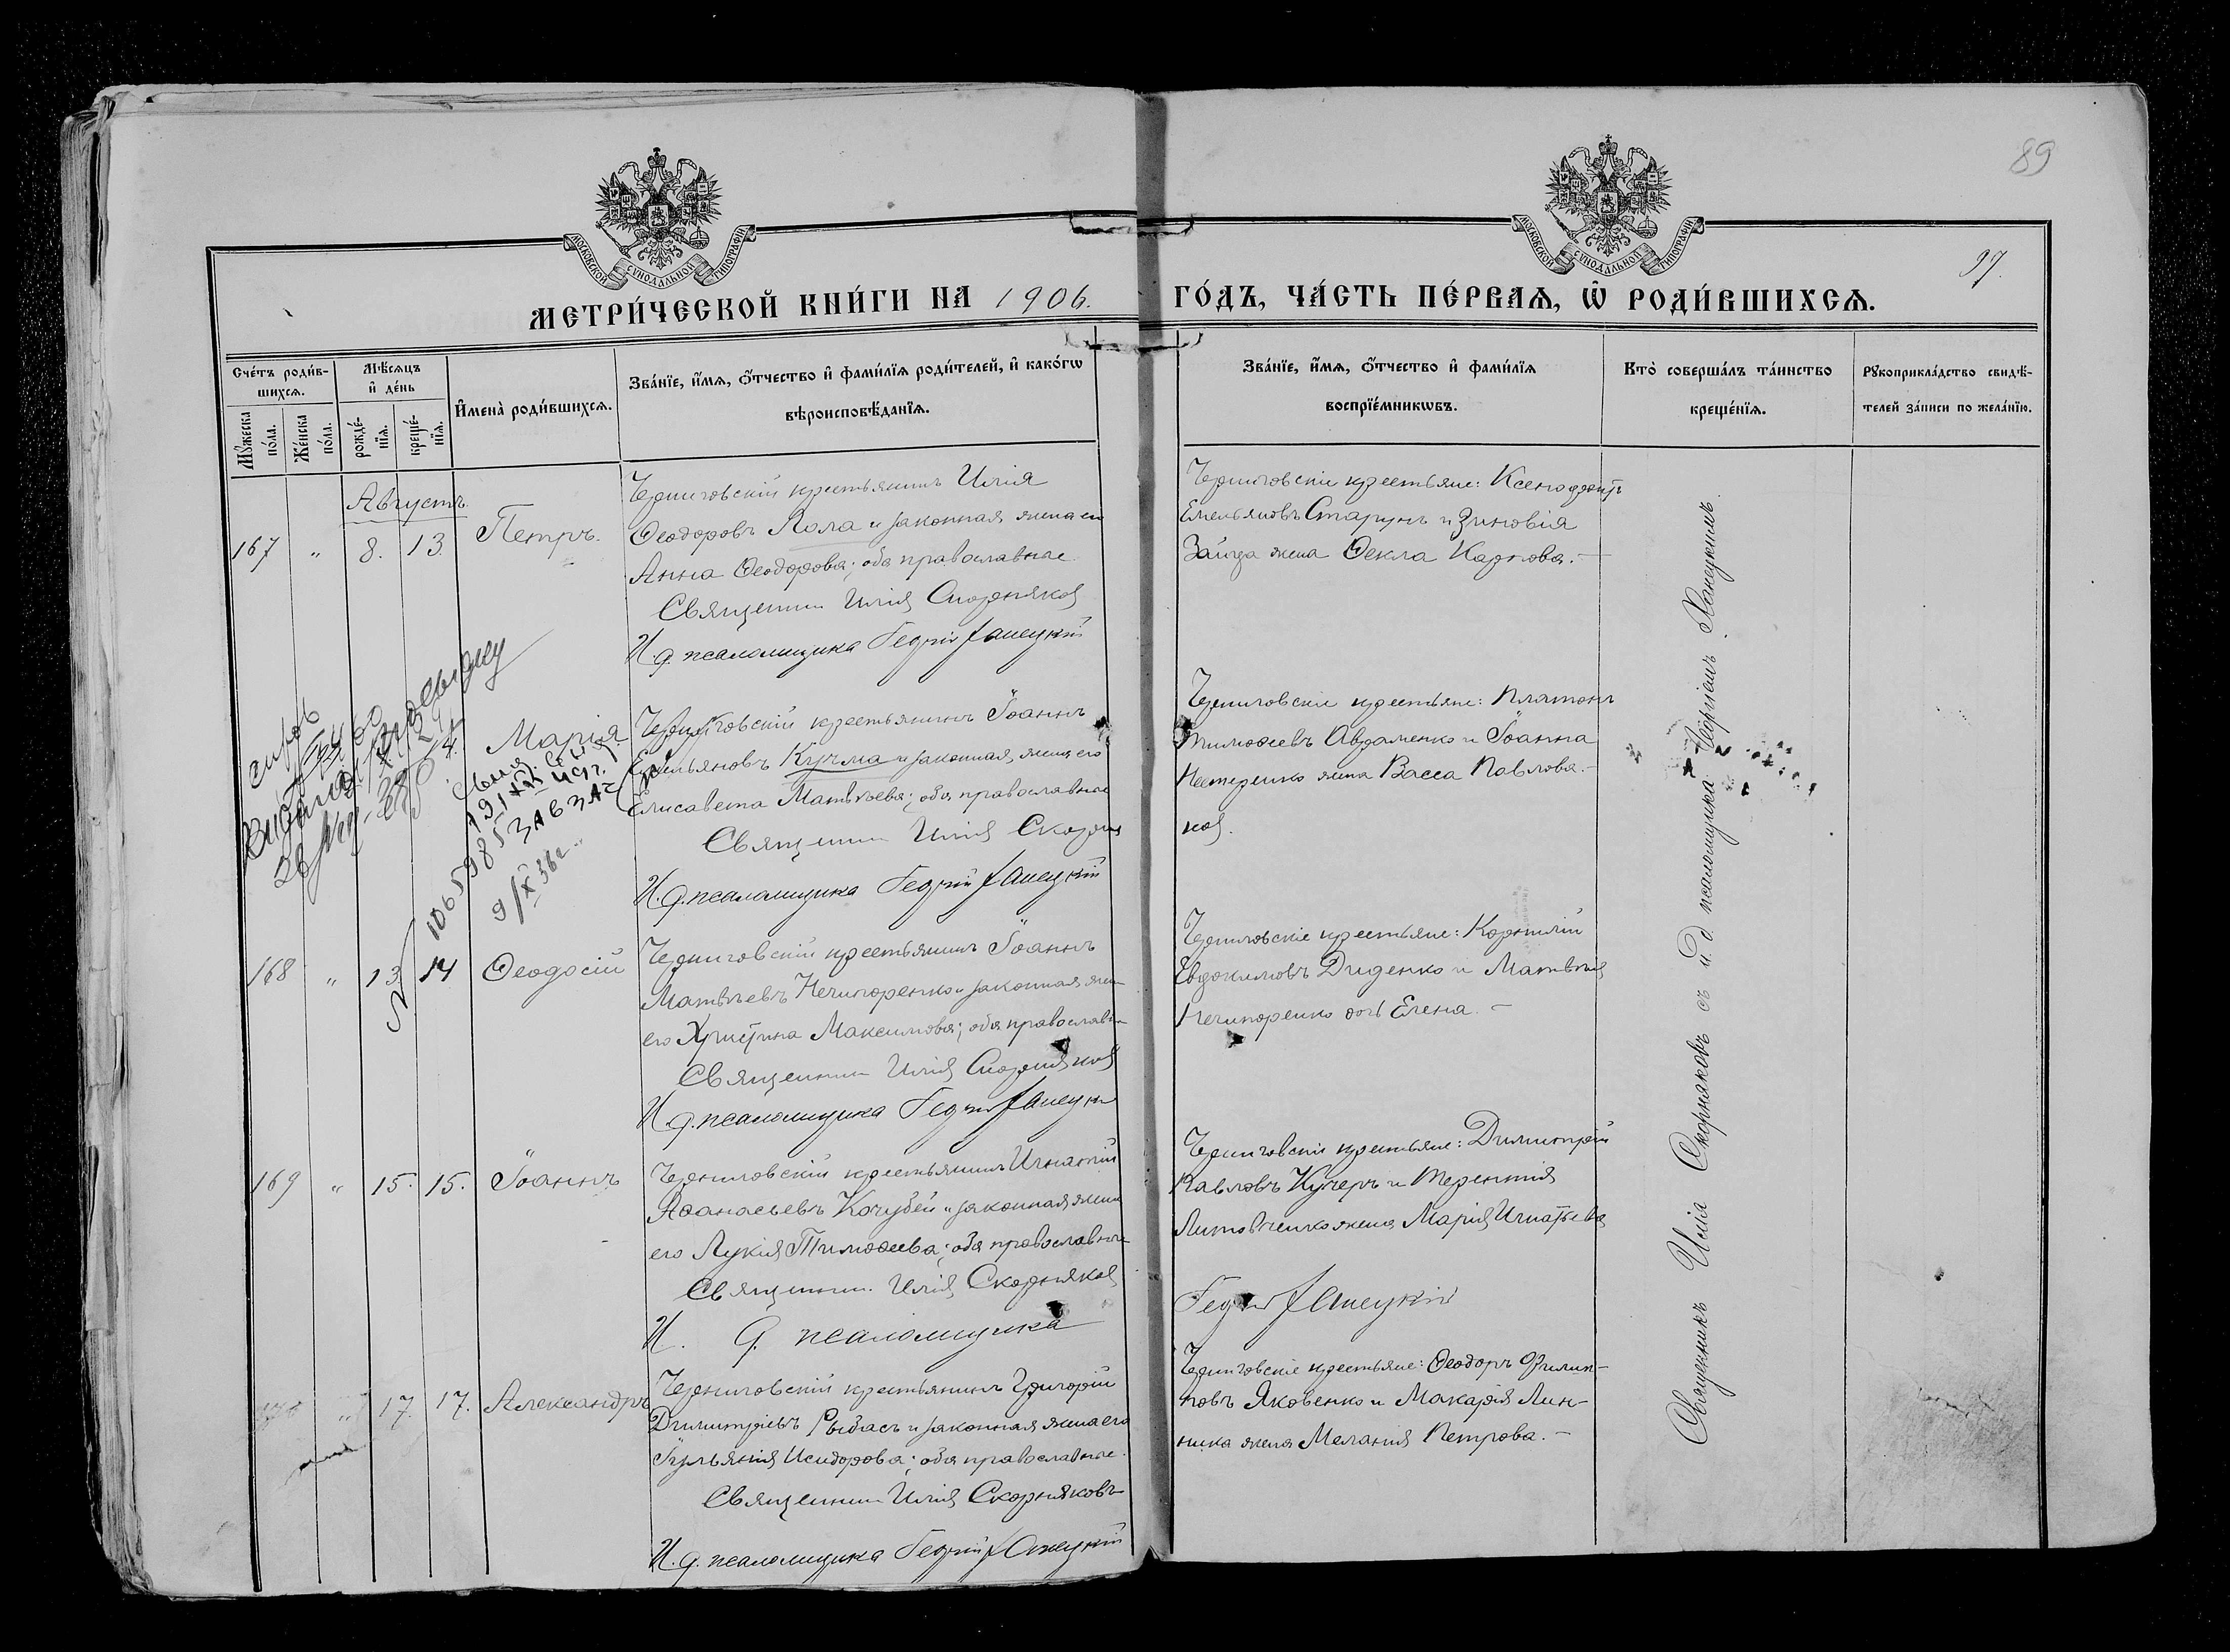 89
97.
МОСКОВСКОЙ СѴНОДАЛЬНОЙ ТИПОГРАФІИ
МОСКОВСКОЙ СѴНОДАЛЬНОЙ ТИПОГРАФІИ
МЕТРИ́ЧЕСКОЙ КНИ́ГИ НА 1906. ГО́ДЪ, ЧА́СТЬ ПЕ́РВАѦ, Ѡ҆ РОДИ́ВШИХСѦ.
Сче́тъ роди́в-
шихсѧ.
Мꙋ́жеска
по́ла.
Же́нска
по́ла.
Мѣ́сѧцъ
и҆ де́нь
рожде́-
нїѧ.
креще́-
нїѧ.
И҆мена̀ роди́вшихсѧ.
Зва́нїе, и҆́мѧ, ѻ҆́тчество и҆ фами́лїѧ роди́телей, и҆ како́гѡ
вѣроисповѣ́данїѧ.
Зва́нїе, и҆́мѧ, ѻ҆́тчество и҆ фами́лїѧ
воспрїе́мникѡвъ.
Кто̀ соверша́лъ та́инство
креще́нїѧ.
Рꙋкоприкла́дство свидѣ́-
телей за́писи по жела́нїю.
Августъ
167 " 8. 13. Петръ.
Черниговскій крестьянинъ Илія
Ѳеодоровъ Кола и законная жена его
Анна Ѳеодорова; оба православные
Священникъ Илія Скорняковъ
И. д. псаломщика Георгій Ханецкій
Черниговскіе крестьяне: Ксенофонтъ
Емельяновъ Старунъ и Зиновія
Зайца жена Ѳекла Карпова.—
Марія
106598
9/X 36г.
Черниговскій крестьянинъ Іоаннъ
Емельяновъ Кучма и законная жена его
Елисавета Матвѣева; оба православные
Священникъ Илія Скорня
И. д. псаломщика Георгій Ханецкій
Черниговскіе крестьяне: Платонъ
Тимоѳеевъ Авраменко и Іоанна
Нестеренко жена Васса Павлова.—
ковъ.
168 " 13. 14 Ѳеодосій
Черниговскій крестьянинъ Іоаннъ
Матвѣевъ Нечипоренко и законная жена
его Христина Максимова; оба православные
Священникъ Илія Скорняковъ
И. д. псаломщика Георгій Ханецкій
Черниговскіе крестьяне: Корнилій
Евдокимовъ Диденко и Матвѣя
Нечипоренко дочь Елена.—
169 " 15. 15. Іоаннъ
Черниговскій крестьянинъ Игнатій
Аѳанасьевъ Кочубей и законная жена
его Лукія Тимоѳеева; оба православные
Священникъ Илія Скорняковъ
И. д. псаломщика
Черниговскіе крестьяне: Димитрій
Павловъ Кучеръ и Терентія
Литовченко жена Марія Игнатьева
Георгій Ханецкій
" 17. 17. Александръ
Черниговскій крестьянинъ Григорій
Димитріевъ Рыбасъ и законная жена его
Іуліанія Исидорова; оба православные.
Священникъ Илія Скорняковъ
И. д. псаломщика Георгій Ханецкій
Черниговскіе крестьяне: Ѳеодоръ Филип-
повъ Яковенко и Макарія Лин-
ника жена Меланія Петрова.—
Священникъ Илія Скорняковъ съ и. д. псаломщика Георгіемъ Ханецкимъ.